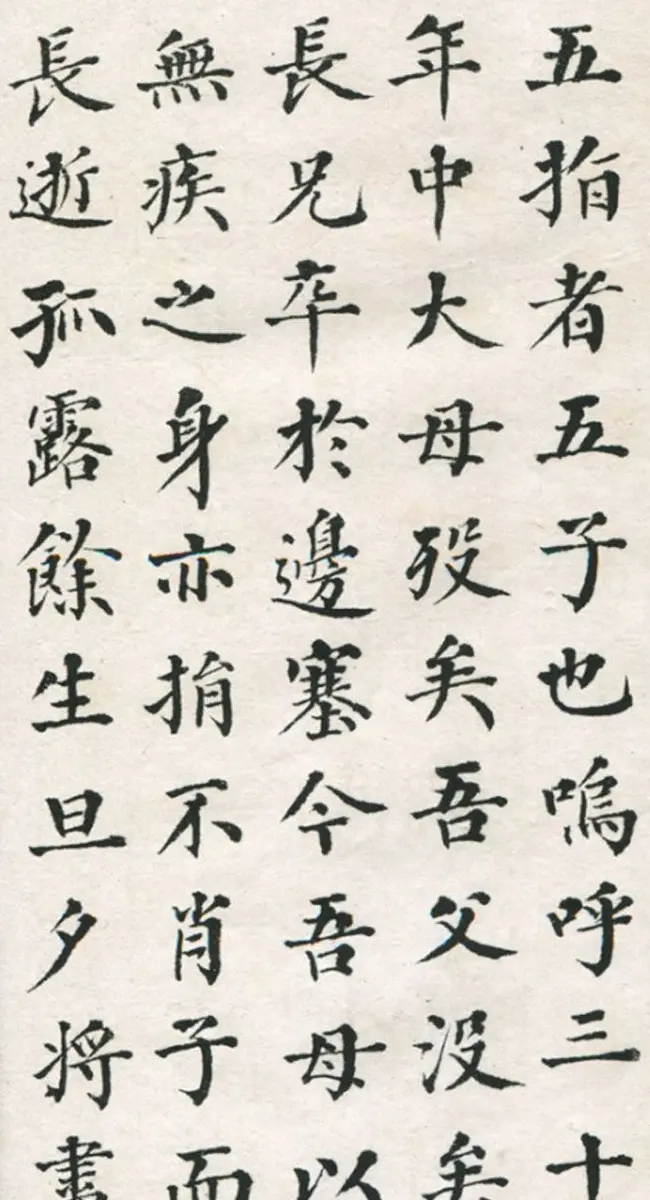 五指者五子也嗚呼三十
年中大母歿矣吾父没矣
長兄卒於邊塞今吾母以
無疾之身亦捐不肖子而
長逝孤露餘生旦夕將書